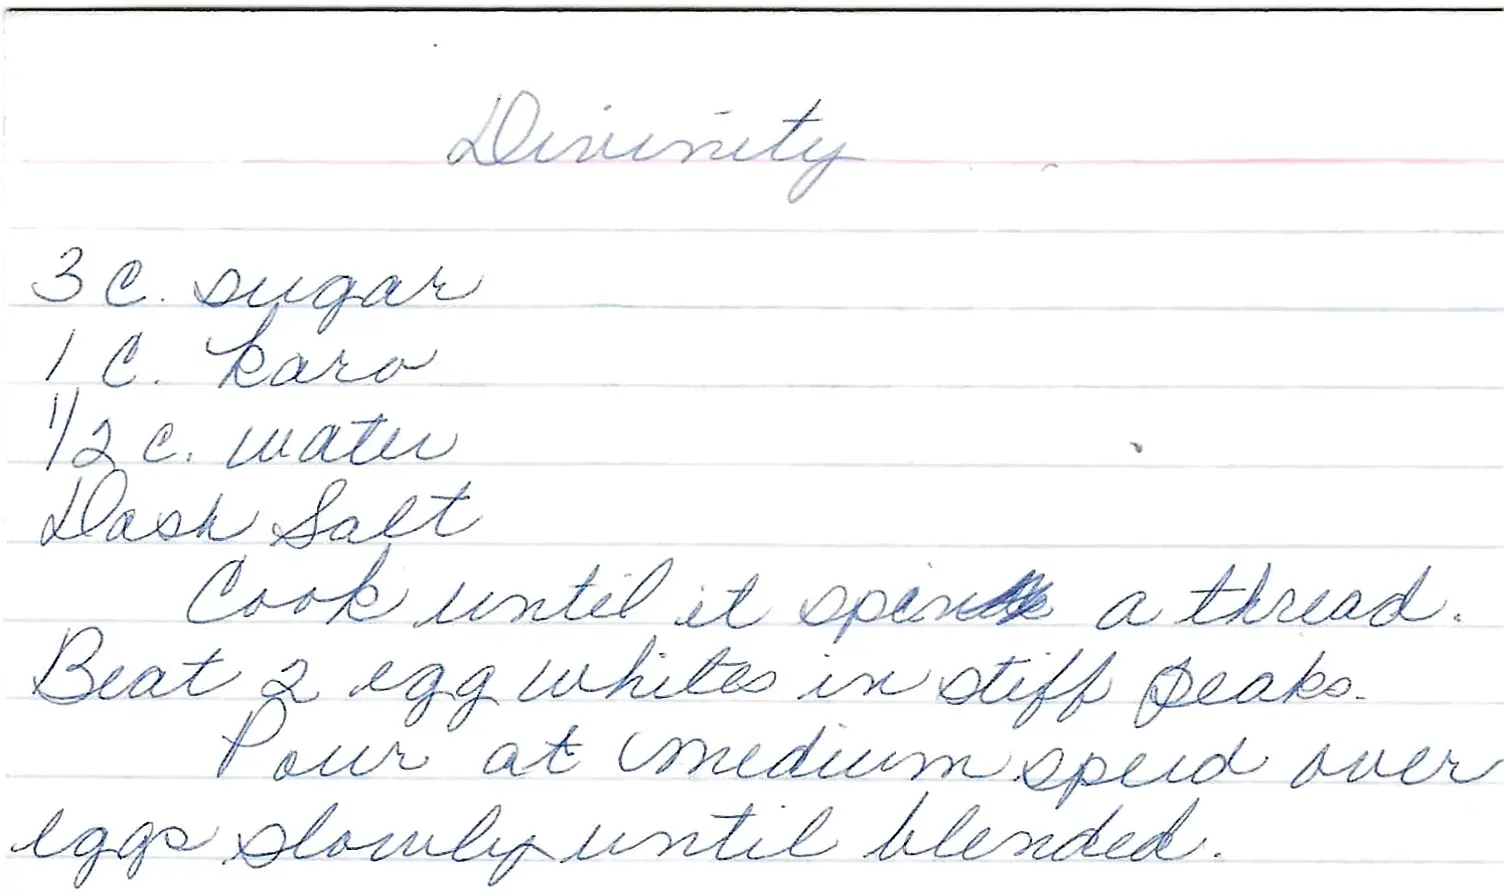 Divinity
3 c. sugar
1 c. karo
1/2 c. water
Dash Salt
Cook until it spins a thread.
Beat 2 egg whites in stiff peaks.
Pour at medium speed over
eggs slowly until blended.